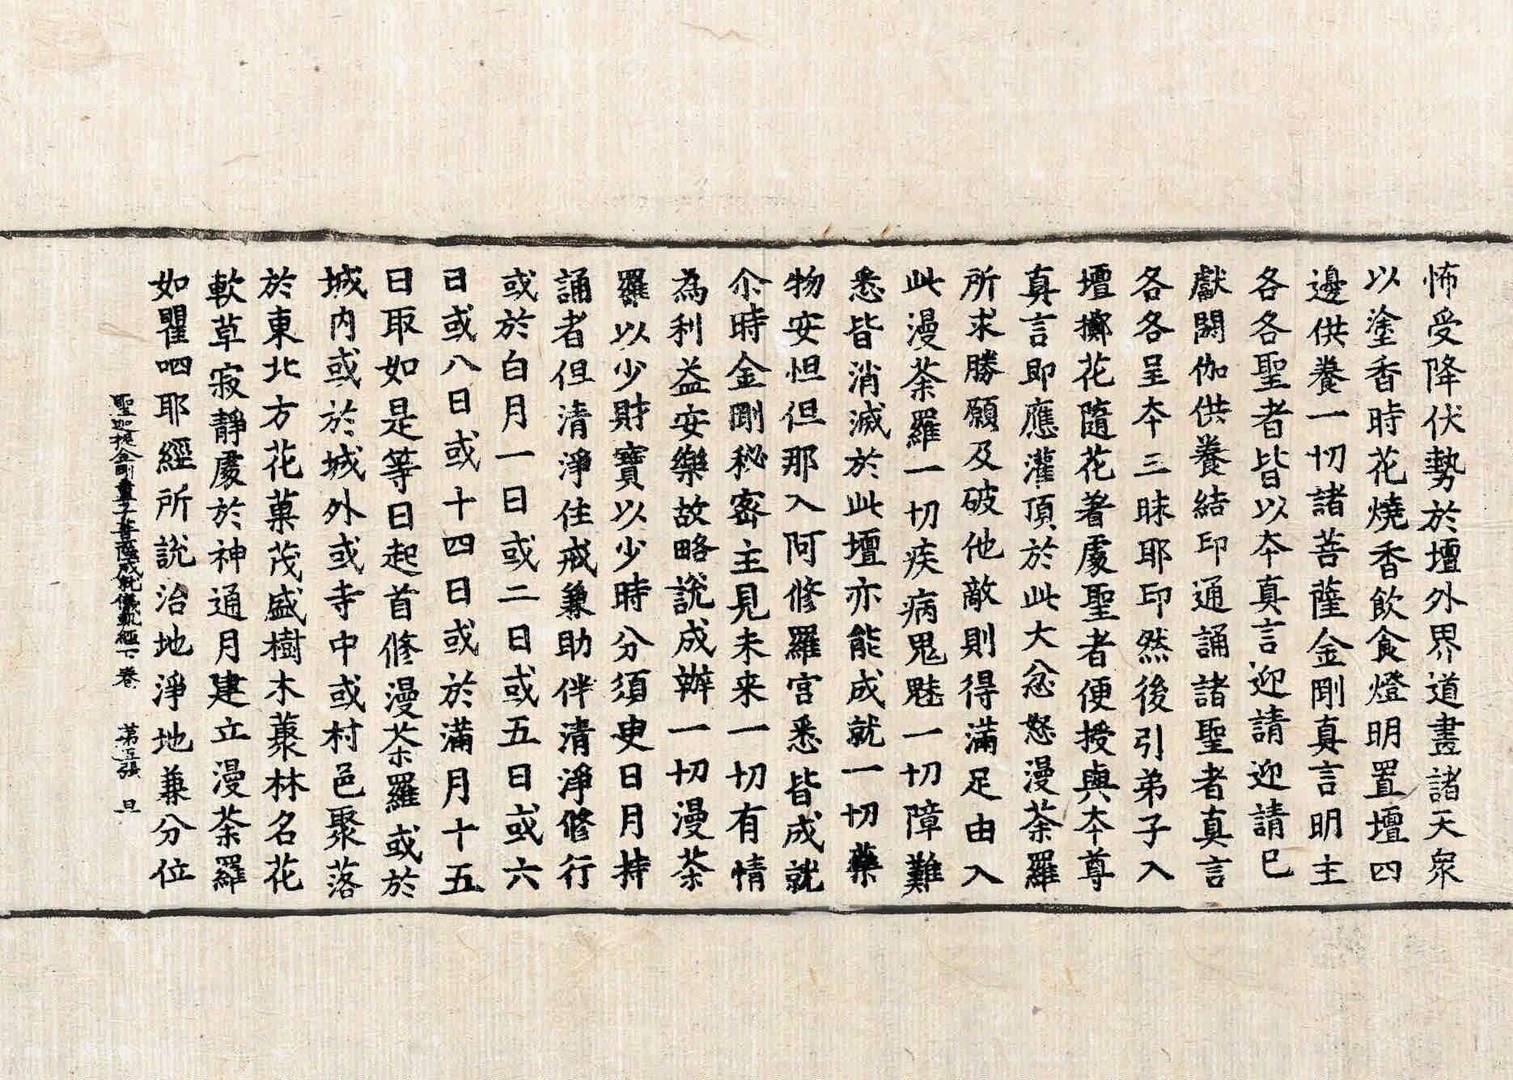 怖受降伏勢於壇外界道畫諸天衆
以塗香時花燒香飲食燈明置壇四
邊供養一切諸菩薩金剛真言明主
各各聖者皆以夲真言迎請迎請已
獻閼伽供養結印通誦諸聖者真言
各各呈夲三昧耶印然後引弟子入
壇擲花隨花著處聖者便授與夲尊
真言即應灌頂於此大忿怒漫荼羅
所求勝願及破他敵則得滿足由入
此漫荼羅一切疾病鬼魅一切障難
悉皆消滅於此壇亦能成就一切藥
物安怛但那入阿修羅宮悉皆成就
尒時金剛秘密主見未来一切有情
為利益安樂故略說成辦一切漫荼
羅以少財寶以少時分須臾日月持
誦者但清淨住戒兼助伴清淨修行
或於白月一日或二日或五日或六
日或八日或十四日或於滿月十五
日取如是等日起首修漫荼羅或於
城內或於城外或寺中或村邑聚落
於東北方花菓茂盛樹木藂林名花
軟草寂靜處於神通月建立漫荼羅
如瞿呬耶經所說治地淨地兼分位
聖迦抳金剛童子菩薩成就儀軌經下卷 第五張 旦